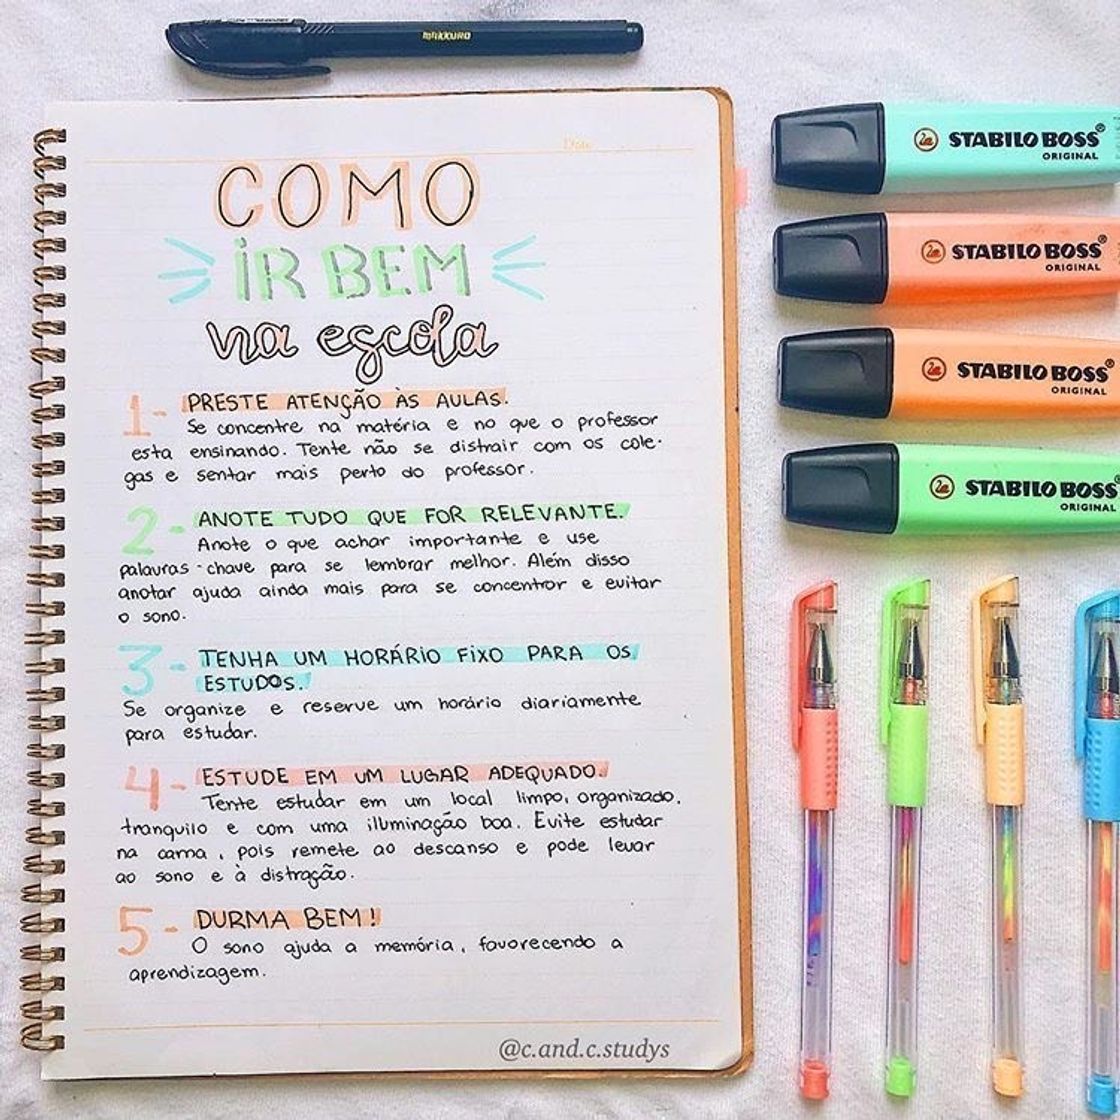 MAKKURO
Date
COMO
iR BEM
na escola
1- PRESTE ATENÇÃO ÀS AULAS.
Se concentre na matéria e no que o professor
esta ensinando. Tente não se distrair com os cole-
gas e sentar mais perto do professor.
2- ANOTE TUDO QUE FOR RELEVANTE.
Anote o que achar importante e use
palavras-chave para se lembrar melhor. Além disso
anotar ajuda ainda mais para se concentrar e evitar
o sono.
3- TENHA UM HORÁRIO FIXO PARA OS
ESTUDOS.
Se organize e reserve um horário diariamente
para estudar.
4- ESTUDE EM UM LUGAR ADEQUADO.
Tente estudar em um local limpo, organizado,
tranquilo e com uma iluminação boa. Evite estudar
na cama, pois remete ao descanso e pode levar
ao sono e à distração.
5- DURMA BEM!
O sono ajuda a memória, favorecendo a
aprendizagem.
@c.and.c.studys
STABILO BOSS®
ORIGINAL
STABILO BOSS®
ORIGINAL
STABILO BOSS®
ORIGINAL
STABILO BOSS®
ORIGINAL